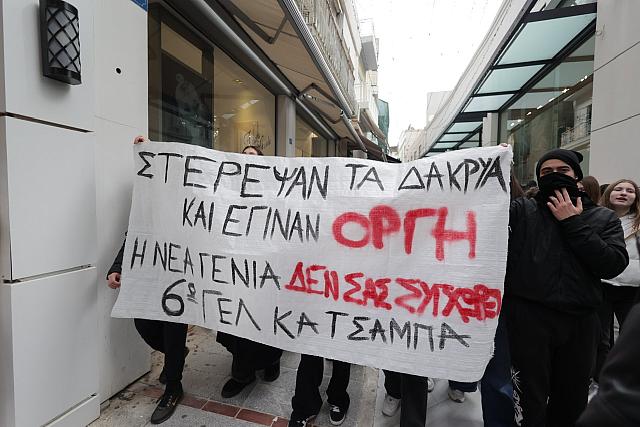 ΣΤΕΡΕΨΑΝ ΤΑ ΔΑΚΡΥΑ
ΚΑΙ ΕΓΙΝΑΝ ΟΡΓΗ
Η ΝΕΑ ΓΕΝΙΑ ΔΕΝ ΣΑΣ ΣΥΓΧΩΡΕΙ
6º ΓΕΛ ΚΑΤΣΑΜΠΑ